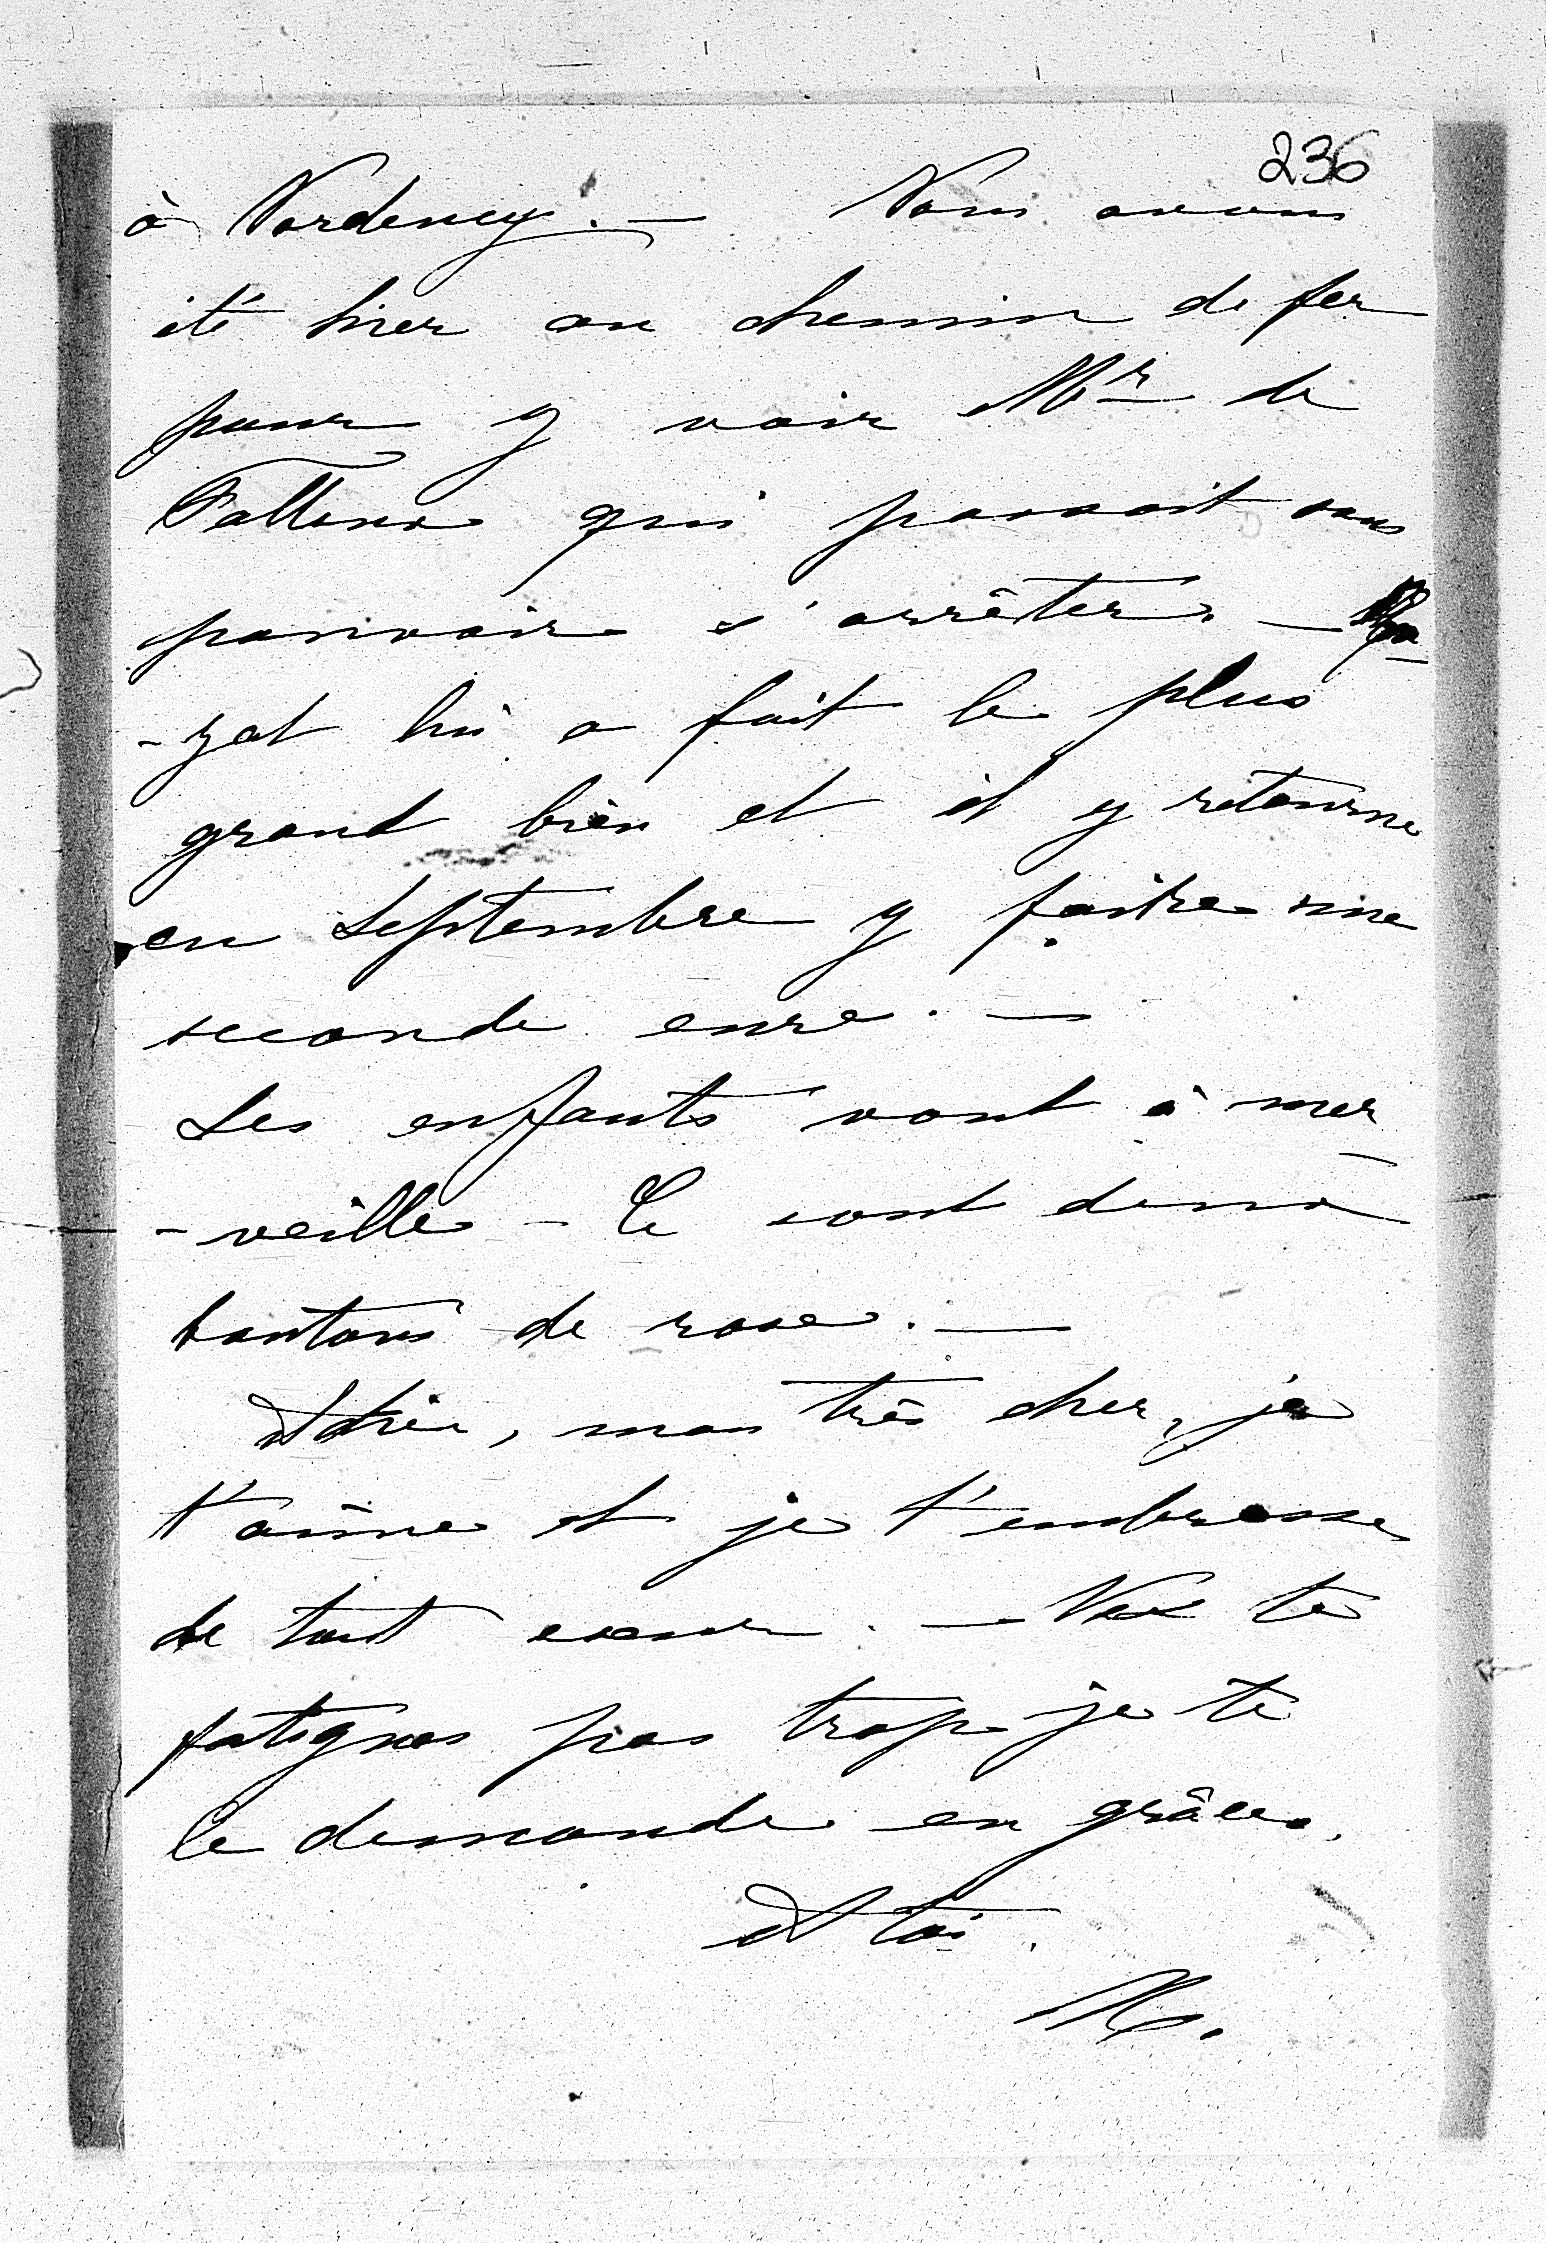 236
à Nordeney. — Nous avons
été hier au chemin de fer
pour y voir Mr de
Falloux qui passait sans
pouvoir s'arrêter. —
-zat lui a fait le plus
grand bien et il y retourne
en Septembre y faire une
seconde cure. —
Les enfants vont à mer
-veille - Ce sont
boutons de rose. —
Adieu, mon très cher, je
t'aime et je t'embrasse
de tout cœur. — Ne te
fatigues pas trop je te
le demande en grâce.
A toi.
M.